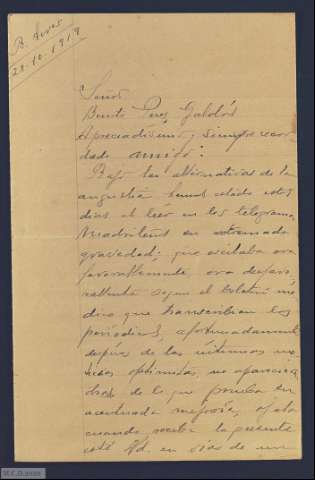 B. Aires
20-10-1919
Señor
Benito Perez Galdós
Apreciadísimo y siempre recor
dado amigo:
Bajo las alternativas de la
angustia hemos estado estos
dias al leer en los telegramas
Madrileños su extremada
gravedad; que oscilaba ora
favorablemente, ora desfavo
rablemente segun el boletin mé
dico que transcribian los
periódicos, afortunadamente
después de las últimas no
ticias optimistas, no aparecia
de lo que prueba su
acentuada mejoría, ojalá
cuando reciba la presente
esté Vd. en vias de un